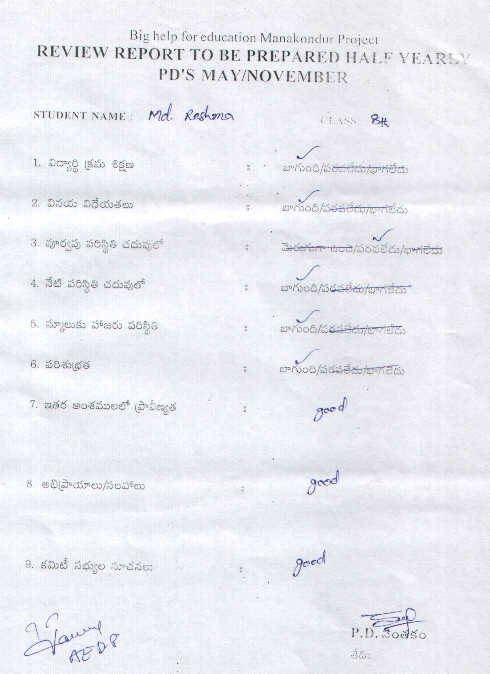 Big help for education Manakondur Project
REVIEW REPORT TO BE PREPARED HALF YEARLY
PD'S MAY/NOVEMBER
STUDENT NAME : Md. Reshma CLASS 8th
1. విద్యార్థి క్రమ శిక్షణ : బాగుంది/పరవలేదు/బాగలేదు
2. వినయ విధేయతలు : బాగుంది/పరవలేదు/బాగలేదు
3. పూర్వపు పరిస్థితి చదువులో : మెరుగుగా ఉంది/పరవలేదు/బాగలేదు
4. నేటి పరిస్థితి చదువులో : బాగుంది/పరవలేదు/బాగలేదు
5. స్కూలుకు హాజరు పరిస్థితి : బాగుంది/పరవలేదు/బాగలేదు
6. పరిశుభ్రత : బాగుంది/పరవలేదు/బాగలేదు
7. ఇతర అంశములలో ప్రావీణ్యత : good
8. అభిప్రాయాలు/సలహాలు : good
9. కమిటీ సభ్యుల సూచనలు : good
P.D. సంతకం
తేదీ: